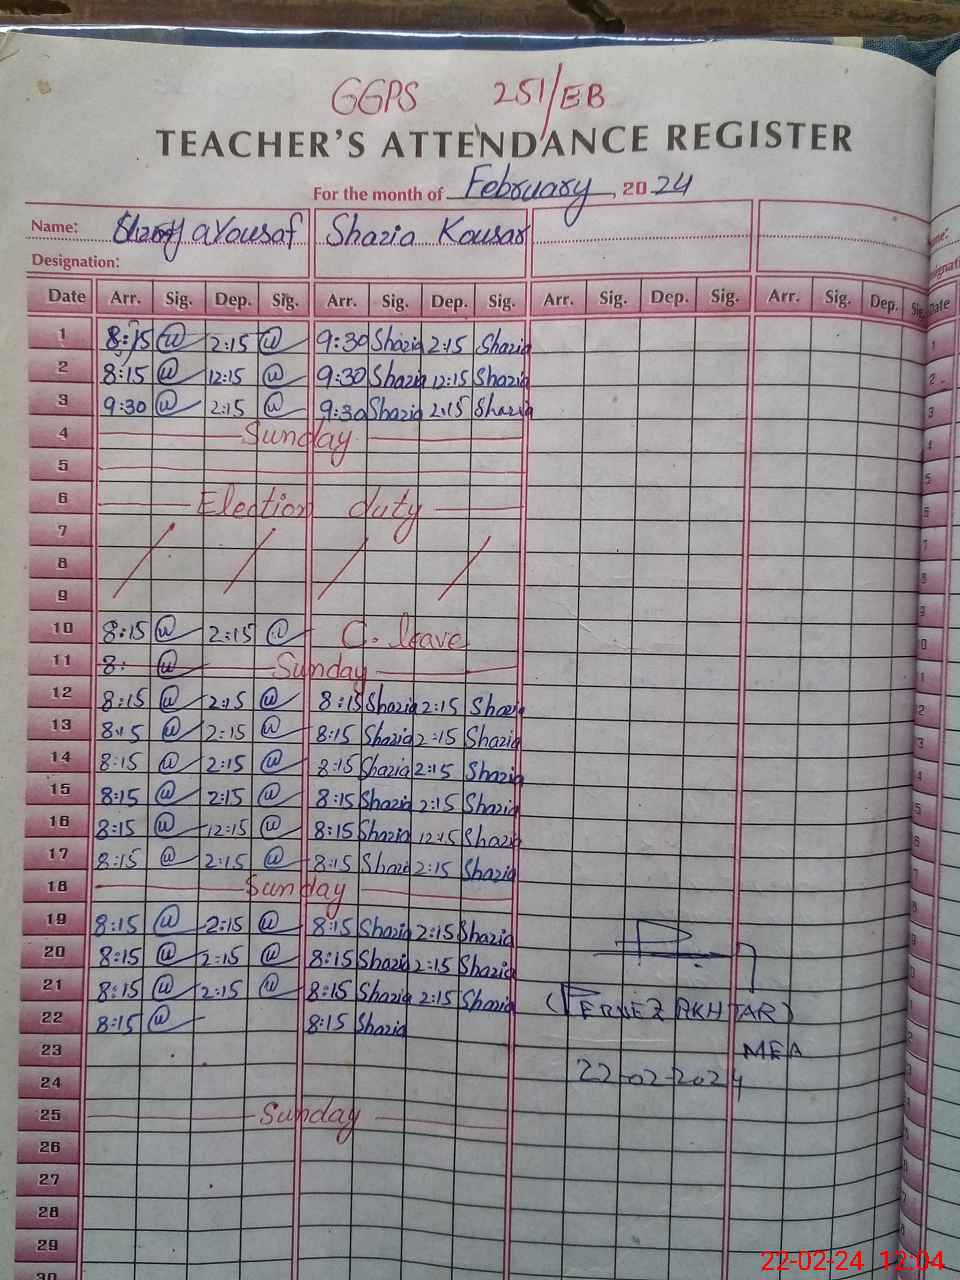 GGPS 251/EB
TEACHER'S ATTENDANCE REGISTER
For the month of February, 2024
Name: Yousaf Shazia Kousar
Designation:
Date Arr. Sig. Dep. Sig. Arr. Sig. Dep. Sig. Arr. Sig. Dep. Sig. Arr. Sig. Dep. Sig. Date
1 8:15 2:15 9:30 Shazia 2:15 Shazia
2 8:15 12:15 9:30 Shazia 12:15 Shazia
3 9:30 2:15 9:30 Shazia 2:15 Shazia
4 Sunday
5
6 Election duty
7
8
9
10 8:15 2:15 C. leave
11 8: Sunday
12 8:15 2:15 8:15 Shazia 2:15 Shazia
13 8:15 2:15 8:15 Shazia 2:15 Shazia
14 8:15 2:15 8:15 Shazia 2:15 Shazia
15 8:15 2:15 8:15 Shazia 2:15 Shazia
16 8:15 12:15 8:15 Shazia 12:15 Shazia
17 8:15 2:15 8:15 Shazia 2:15 Shazia
18 Sunday
19 8:15 2:15 8:15 Shazia 2:15 Shazia
20 8:15 2:15 8:15 Shazia 2:15 Shazia
21 8:15 2:15 8:15 Shazia 2:15 Shazia
(PERNEZ AKHTAR)
22 8:15 8:15 Shazia
23 MEA
24 22-02-2024
25 Sunday
26
27
28
29
30
22-02-24 12:04